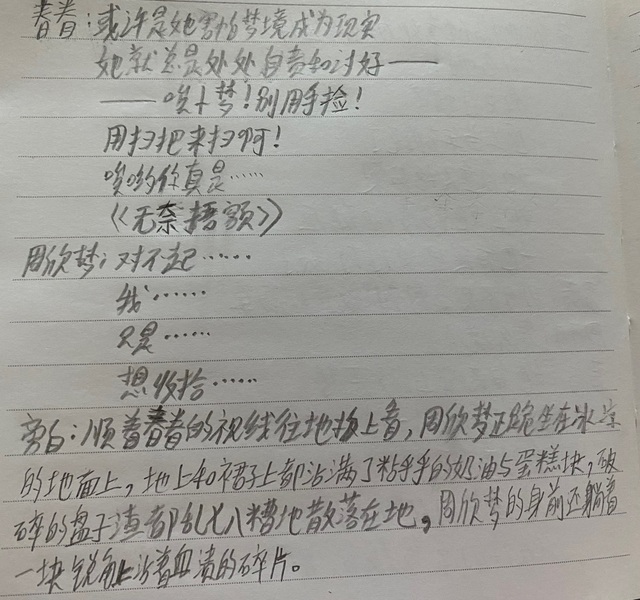 春春：或许是她害怕梦境成为现实
她就总是处处自责和讨好——
——唉十梦！别用手捡！
用扫把来扫啊！
唉哟你真是……
《无奈捂额》
周欣梦：对不起……
我……
只是……
想收拾……
旁白：顺着春春的视线往地板上看，周欣梦正跪坐在冰凉
的地面上，地上和裙子上都沾满了粘乎乎的奶油与蛋糕块，破
碎的盘子渣都乱七八糟地散落在地。周欣梦的身前还躺着
一块锐角上沾着血渍的碎片。